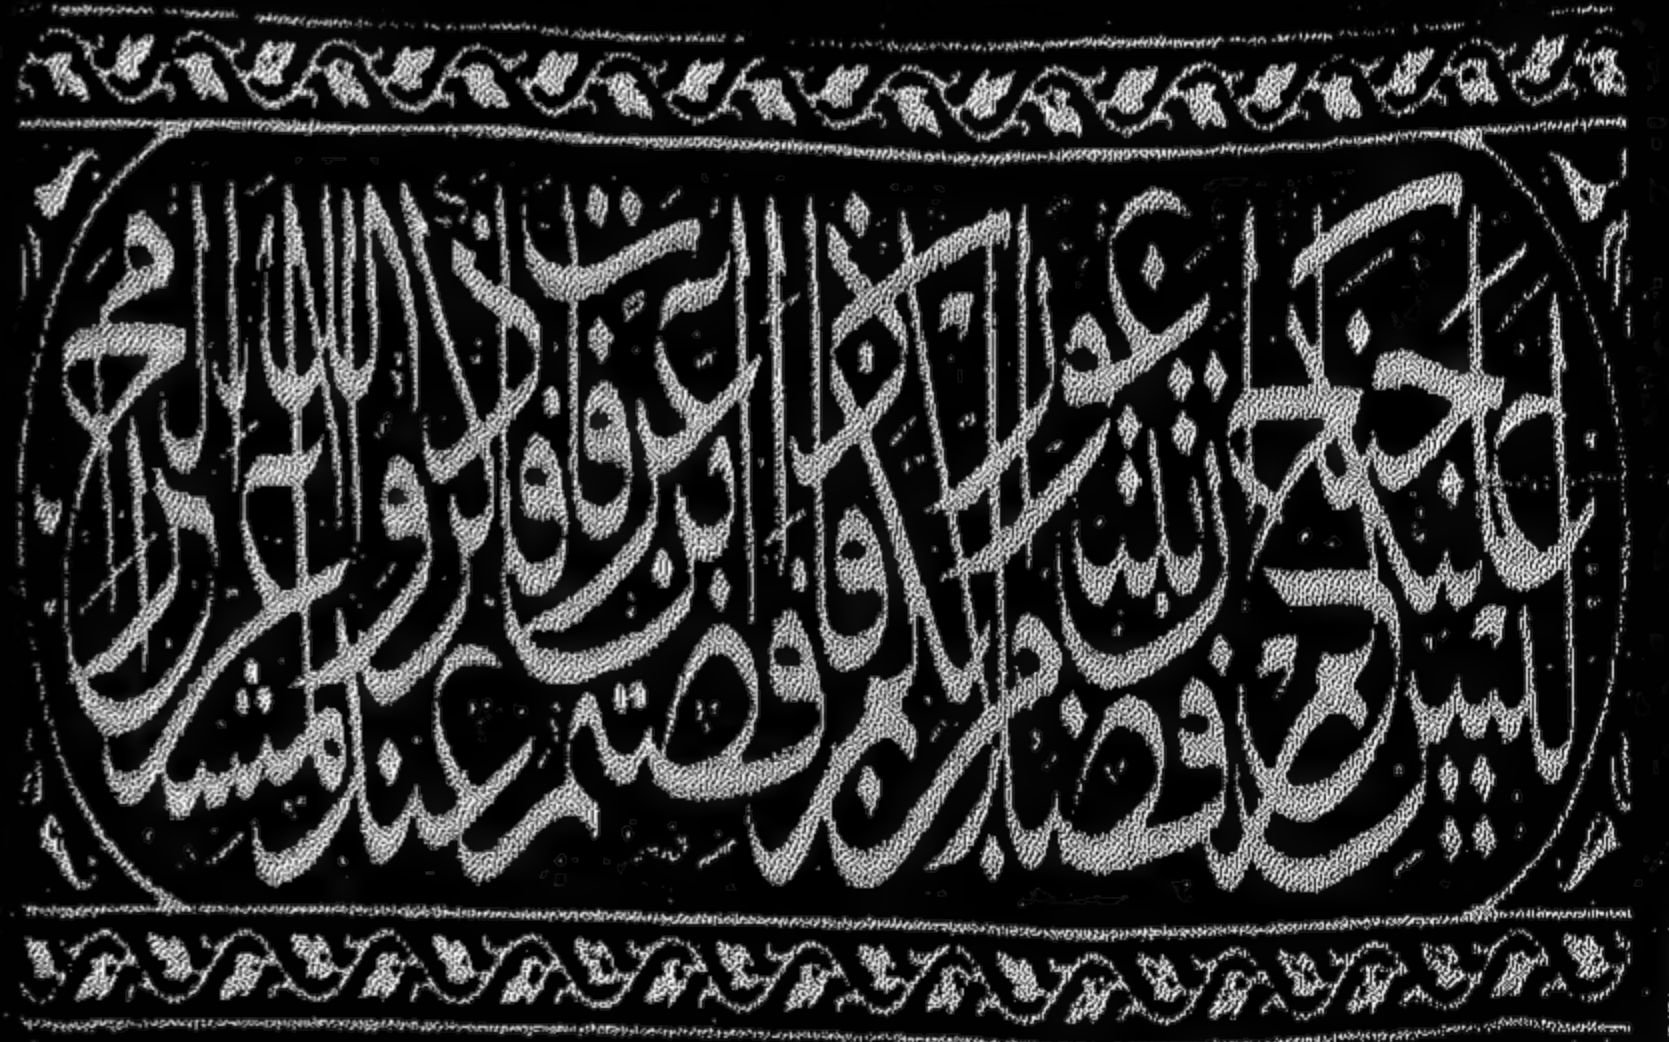 ليس عليكم جناح ان تبتغوا فضلا من ربكم فاذا افضتم من عرفات فاذكروا الله عند المشعر الحرام